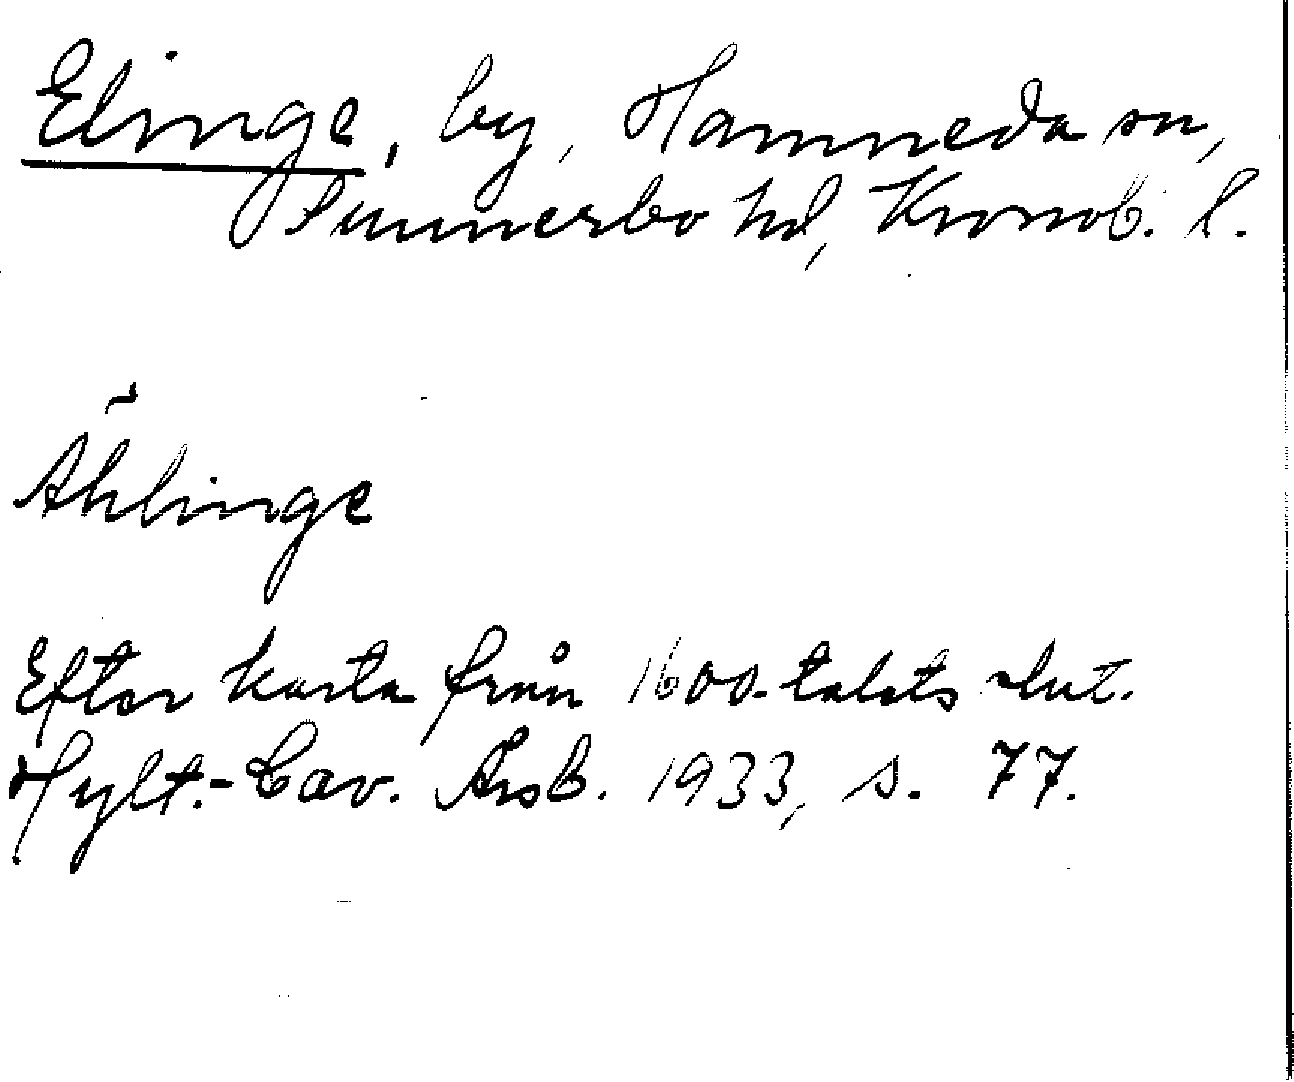 Elinge, by, Hamneda sn,
Sunnerbo hd, Kronob. l.
Ählinge
Efter karta från 1600-talets slut.
Hylt.-Cav. Årsb. 1933, s. 77.